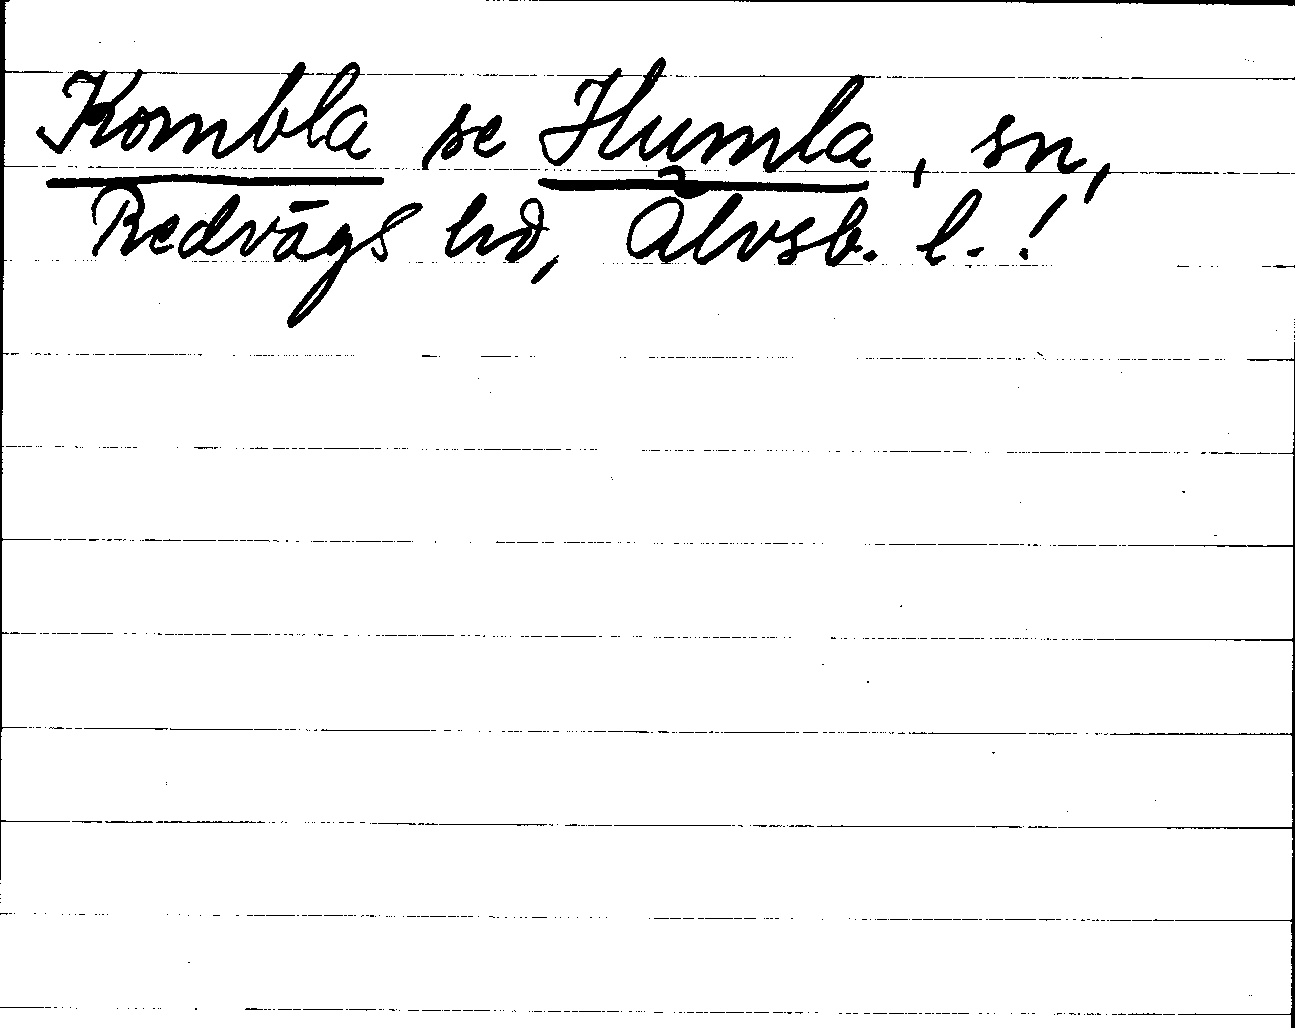 Kombla se Humla, sn,
Redvägs hd, Älvsb. l.!